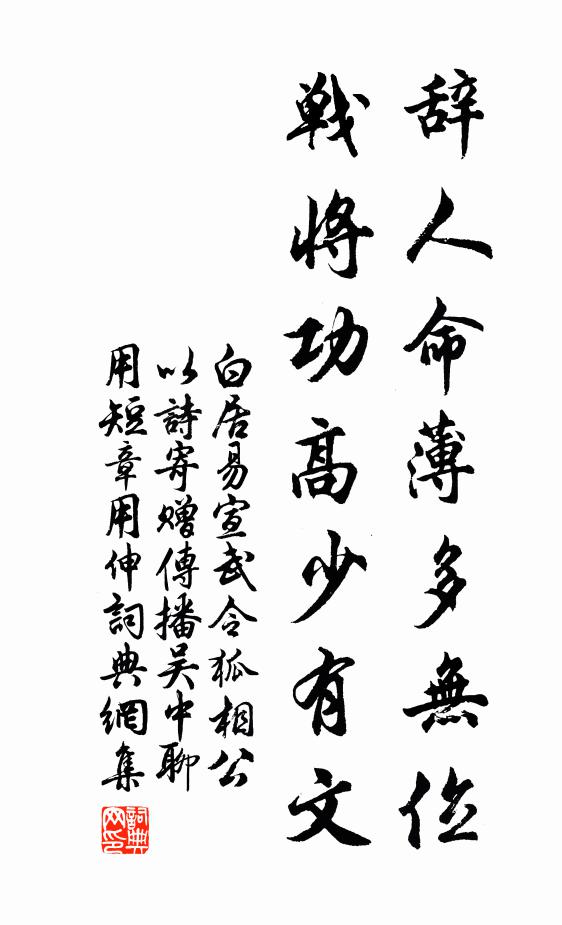 辞人命薄多無位
戦将功高少有文
白居易宣武令狐相公
以詩寄贈傳播吴中聊
用短章用伸詞典網集
詞典网印